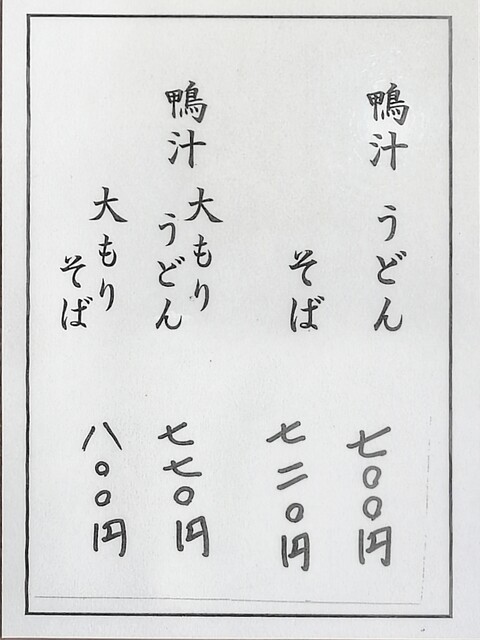 鴨汁 うどん 七〇〇円
そば 七二〇円
鴨汁 大もり うどん 七七〇円
大もり そば 八〇〇円